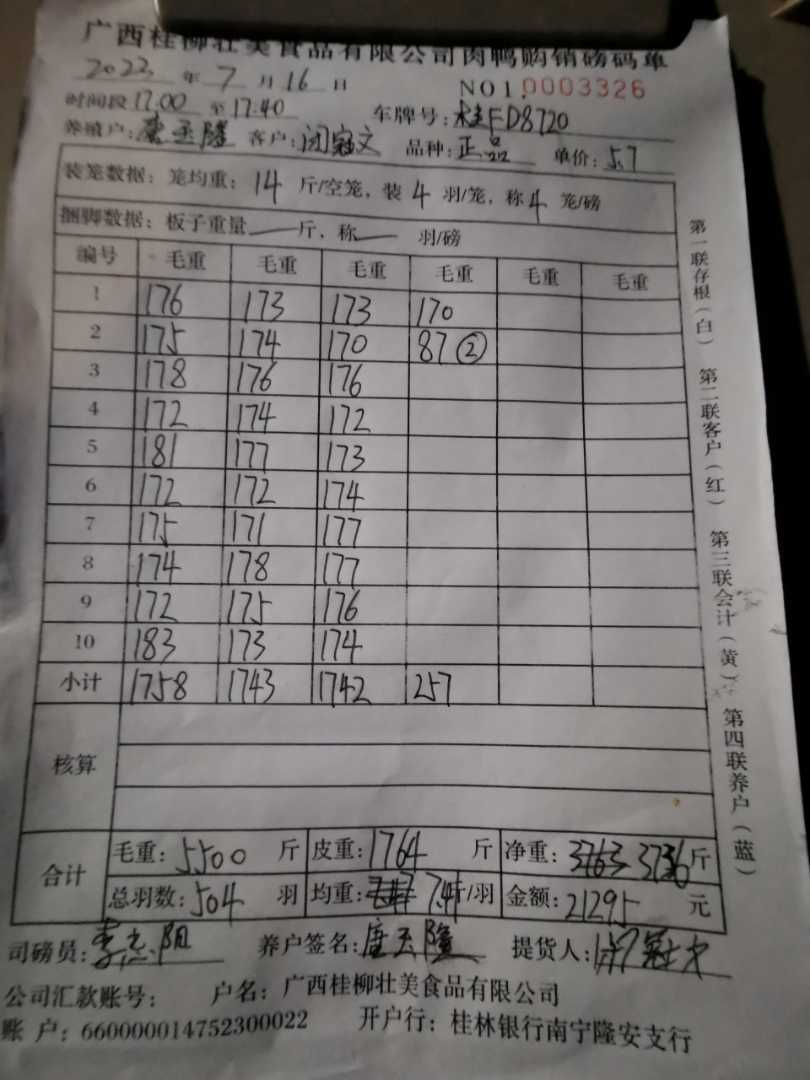 广西桂柳壮美食品有限公司肉鸭购销磅码单
2023 年 7 月 16 日 NO1.0003326
时间段 17:00 至 17:40 车牌号: 桂FD8720
养殖户: 唐玉隆 客户: 闭冠文 品种: 正品 单价: 5.7
装笼数据: 笼均重: 14 斤/空笼, 装 4 羽/笼, 称 4 笼/磅
捆脚数据: 板子重量 — 斤, 称 — 羽/磅
编号 毛重 毛重 毛重 毛重 毛重 毛重
1 176 173 173 170
2 175 174 170 87 ②
3 178 176 176
4 172 174 172
5 181 177 173
6 172 172 174
7 175 171 177
8 174 178 177
9 172 175 176
10 183 173 174
小计 1758 1743 1742 257
核算
合计
毛重: 5500 斤 皮重: 1764 斤 净重: 3763 3736 斤
总羽数: 504 羽 均重: 7.41 斤/羽 金额: 21295 元
司磅员: 李志阳 养户签名: 唐玉隆 提货人: 闭冠文
公司汇款账号: 户名: 广西桂柳壮美食品有限公司
账 户: 660000014752300022 开户行: 桂林银行南宁隆安支行
第一联存根(白) 第二联客户(红) 第三联会计(黄) 第四联养户(蓝)